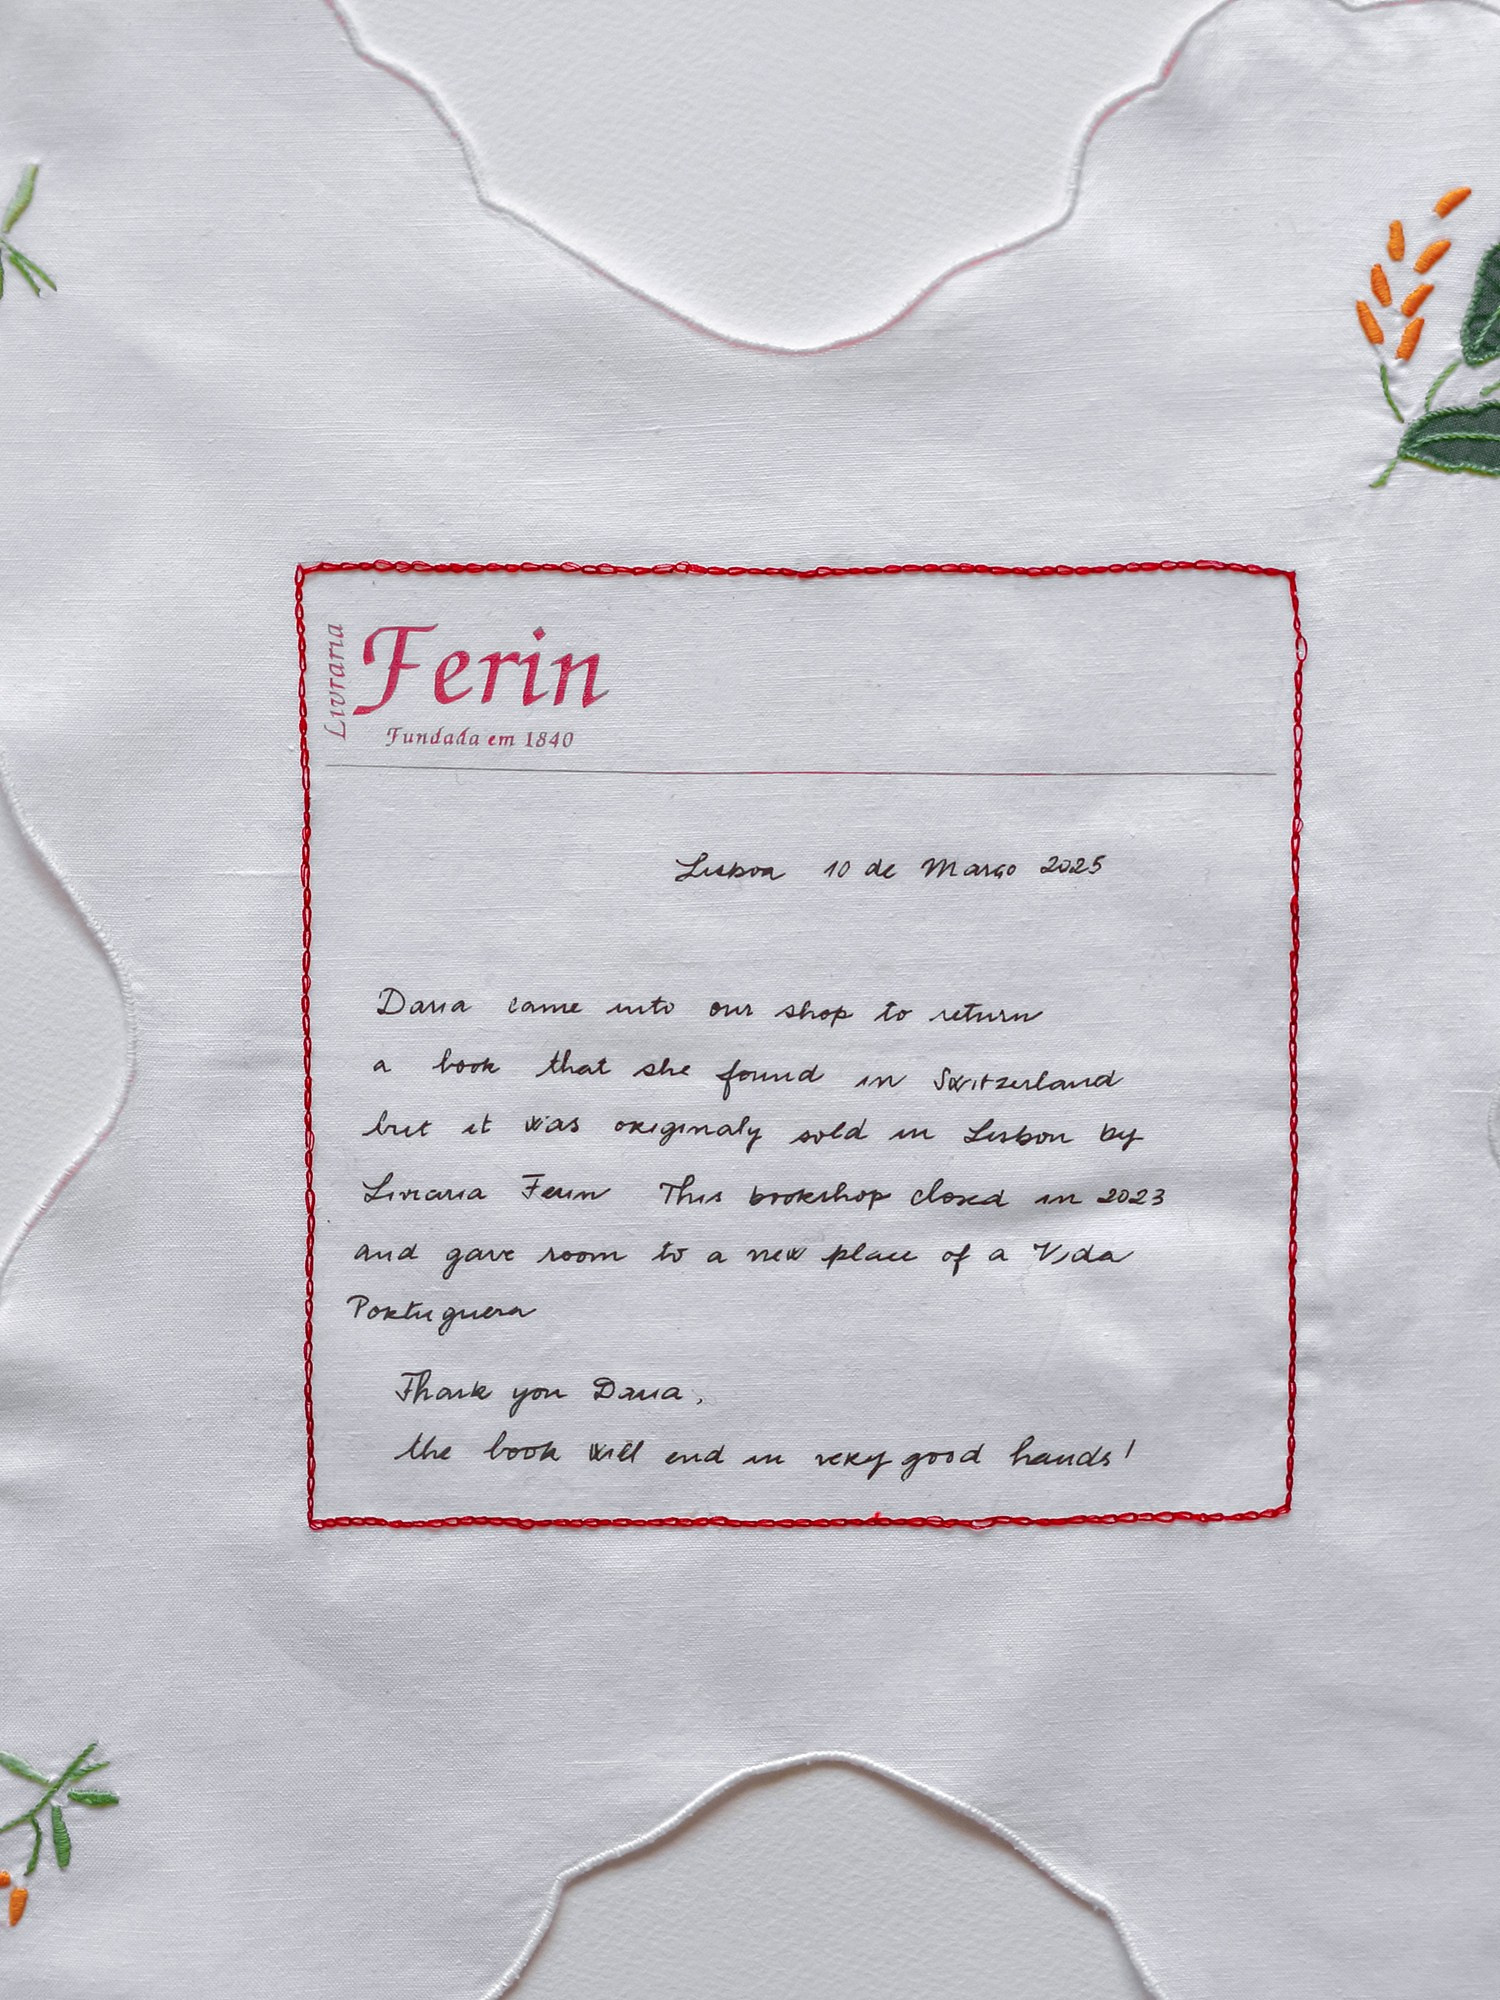 Livraria
Ferin
Fundada em 1840
Lisboa 10 de Março 2025
Daria came into our shop to return
a book that she found in Switzerland
but it was originaly sold in Lisbon by
Livraria Ferin This bookshop closed in 2023
and gave room to a new place of a Vida
Portuguesa
Thank you Daria,
the book will end in very good hands!